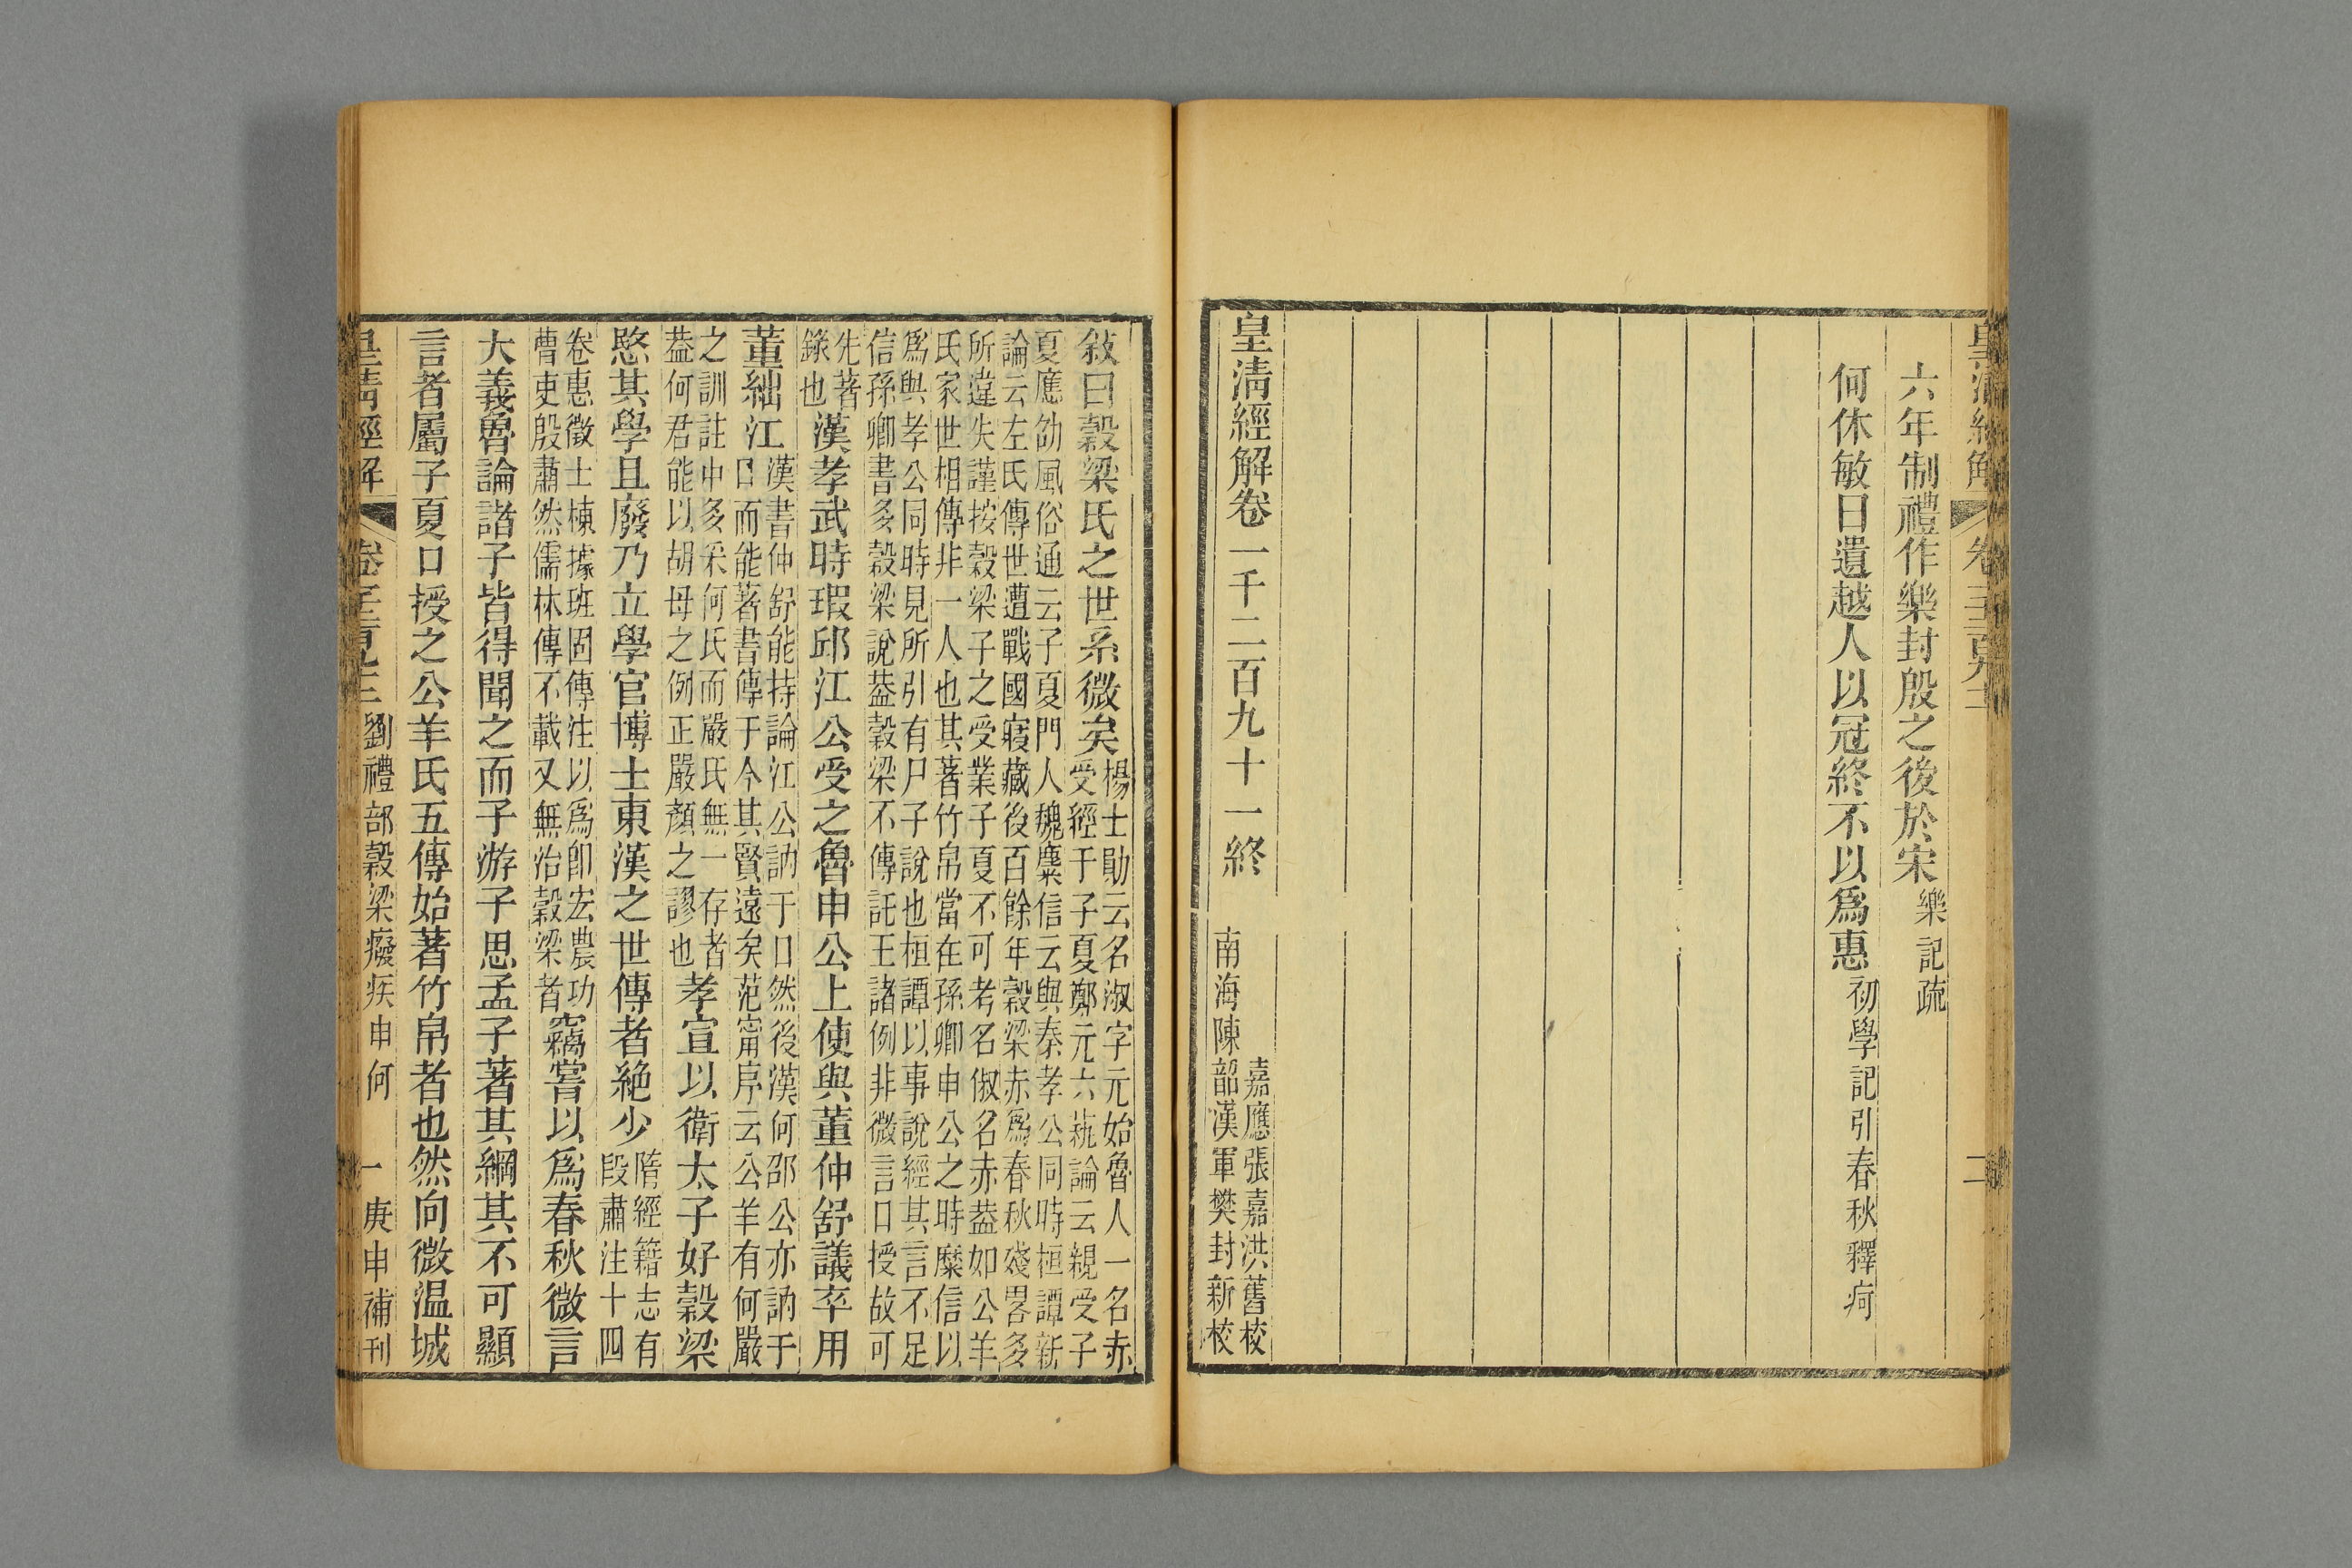 六年制禮作樂封殷之後於宋樂記疏
何休敏曰遺越人以冠終不以爲惠初學記引春秋釋痾
皇清經解卷一千二百九十一終
嘉應張嘉洪舊校
南海陳韶漢軍樊封新校
敍曰穀梁氏之世系微矣楊士勛云名淑字元始魯人一名赤
受經于子夏鄭元六蓺論云親受子
夏應劭風俗通云子夏門人魏麋信云與秦孝公同時桓譚新
論云左氏傳世遭戰國寢藏後百餘年穀梁赤爲春秋殘畧多
所違失謹按穀梁子之受業子夏不可考名俶名赤葢如公羊
氏家世相傳非一人也其著竹帛當在孫卿申公之時糜信以
爲與孝公同時見所引有尸子說也桓譚以事說經其言不足
信孫卿書多穀梁說葢穀梁不傳託王諸例非微言口授故可
先著
錄也漢孝武時瑕邱江公受之魯申公上使與董仲舒議卒用
董絀江漢書仲舒能持論江公訥于口然後漢何邵公亦訥于
口而能著書傳于今其賢遠矣范甯序云公羊有何嚴
之訓註中多采何氏而嚴氏無一存者
葢何君能以胡母之例正嚴顏之謬也孝宣以衛太子好穀梁
愍其學且廢乃立學官博士東漢之世傳者絶少隋經籍志有
段肅注十四
卷惠徵士棟據班固傳注以爲卽宏農功
曹吏殷肅然儒林傳不載又無治穀梁者竊嘗以爲春秋微言
大義魯論諸子皆得聞之而子游子思孟子著其綱其不可顯
言者屬子夏口授之公羊氏五傳始著竹帛者也然向微温城
皇清經解 劉禮部穀梁癈疾申何 一 庚申補刊